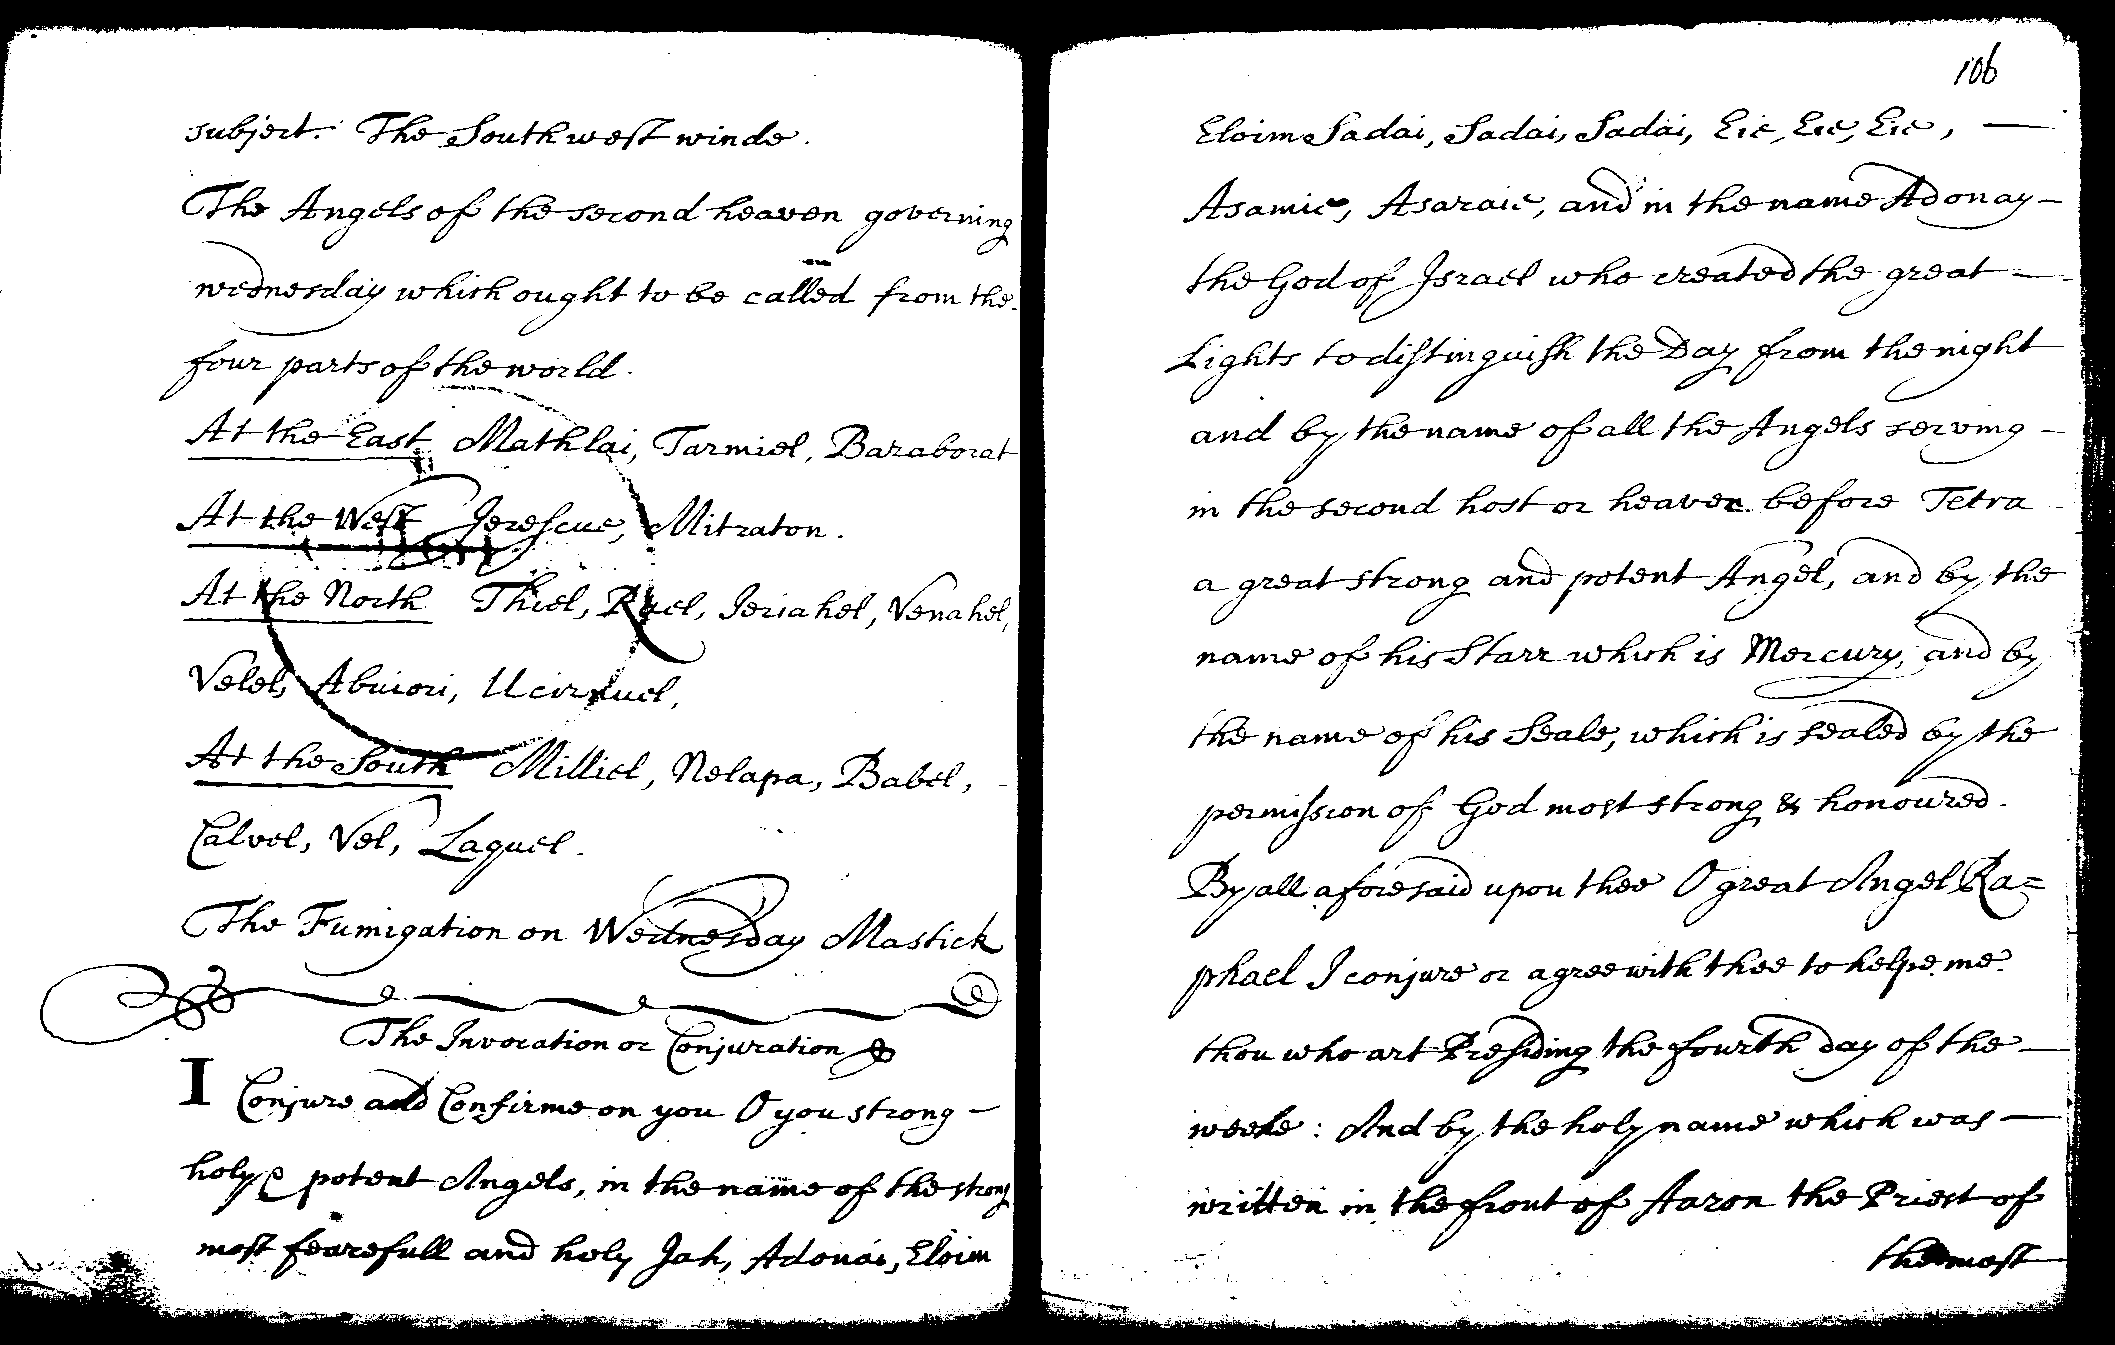 subject. The Southwest winde.
The Angels of the second heaven governing
wednesday which ought to be called from the
four parts of the world.
At the East Mathlai, Tarmiel, Baraborat
At the West Jerescue, Mitraton.
At the North Thiel, Rael, Jeriahel, Venahel,
Velel, Abuiori, Ucirnuel,
At the South Milliel, Nelapa, Babel,
Calvel, Vel, Laquel.
The Fumigation on Wednesday Mastick
The Invocation or Conjuration
I Conjure and Confirme on you O you strong
holy & potent Angels, in the name of the strong
most fearefull and holy Jah, Adonai, Eloim
106
Eloim Sadai, Sadai, Sadai, Eie, Eie, Eie,
Asamie, Asaraie, and in the name Adonay
the God of Israel who created the great
Lights to distinguish the Day from the night
and by the name of all the Angels serving
in the second host or heaven before Tetra
a great strong and potent Angel, and by the
name of his Starr which is Mercury, and by
the name of his Seale, which is sealed by the
permission of God most strong & honoured.
By all aforesaid upon thee O great Angel Ra=
phael I conjure or agree with thee to helpe me
thou who art Presiding the fourth day of the
weeke: And by the holy name which was
written in the front of Aaron the Priest of
the most